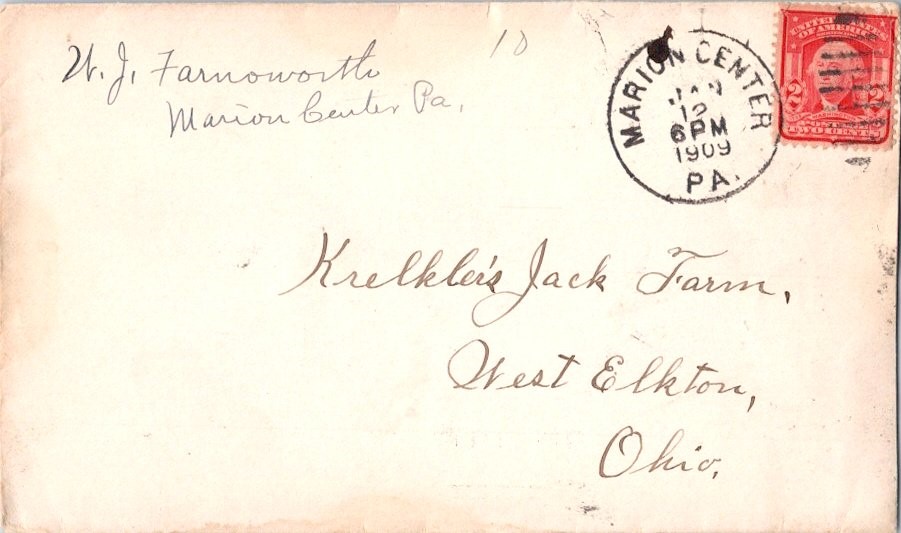 W. J. Farnoworth
Marion Center Pa.
10
MARION CENTER
JAN
12
6PM
1909
PA.
UNITED STATES
OF AMERICA
2 2
TWO CENTS
Krelkler's Jack Farm,
West Elkton,
Ohio.